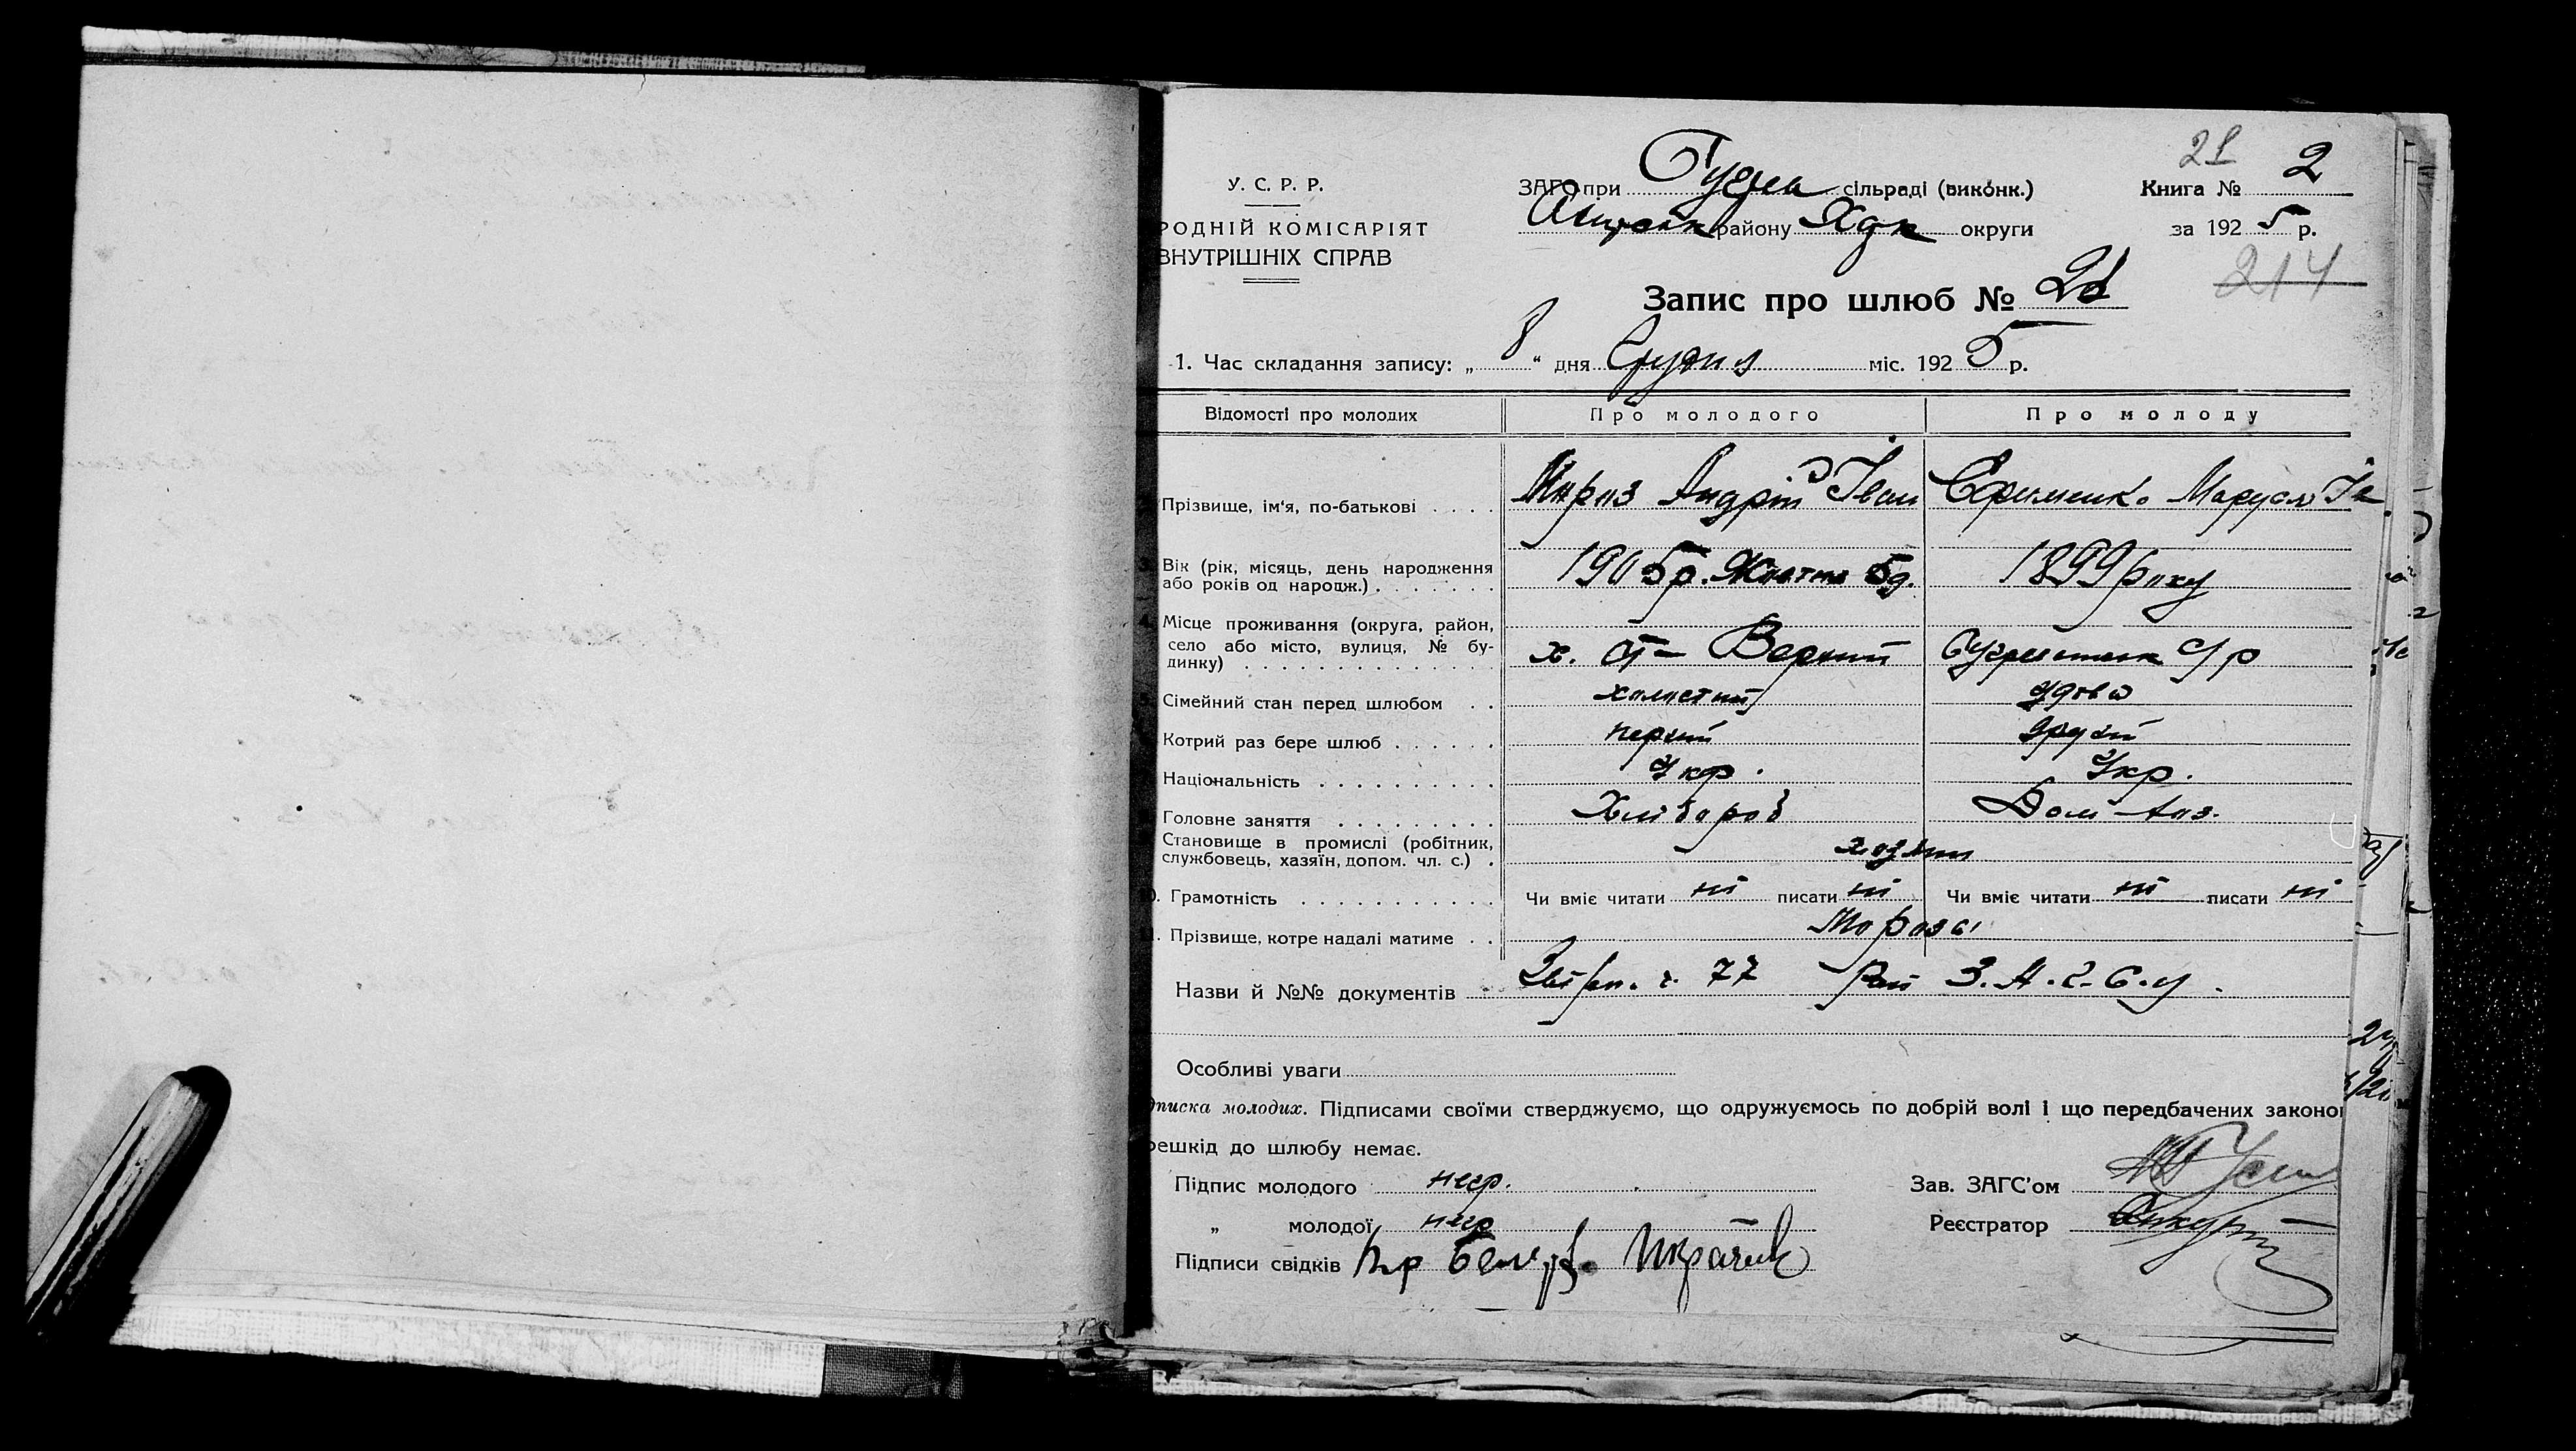 21
У. С. Р. Р.
ЗАГС при сільраді (виконк.) Книга № 2
РОДНІЙ КОМІСАРІЯТ
району округи за 1925 р.
ВНУТРІШНІХ СПРАВ
214
Запис про шлюб № 21
1. Час складання запису: „ 8 “ дня Грудня міс. 1925 р.
Відомості про молодих Про молодого Про молоду
Прізвище, ім‘я, по-батькові . . . . Мороз Андрій Іван Єфименко Маруся Ів
Вік (рік, місяць, день народження
або років од народж.) . . . . . . . 1905 р. Жовтня 5 д. 1899 року
Місце проживання (округа, район,
село або місто, вулиця, № бу-
динку) . . . . . . . . . . . . . . . х.
Сімейний стан перед шлюбом . . холостий удова
Котрий раз бере шлюб . . . . . . перший другий
Національність . . . . . . . . . . Укр. Укр.
Головне заняття . . . . . . . . . Хлібороб Дом-хоз.
Становище в промислі (робітник,
службовець, хазяїн, допом. чл. с.) .
. Грамотність . . . . . . . . . . . Чи вміє читати ні писати ні Чи вміє читати ні писати ні
. Прізвище, котре надалі матиме . . Морози
Назви й №№ документів 77 Рай З.А.Г.С.у.
Особливі уваги
дписка молодих. Підписами своїми стверджуємо, що одружуємось по добрій волі і що передбачених законо
решкід до шлюбу немає.
Підпис молодого негр. Зав. ЗАГС’ом
„ молодої негр Реєстратор
Підписи свідків